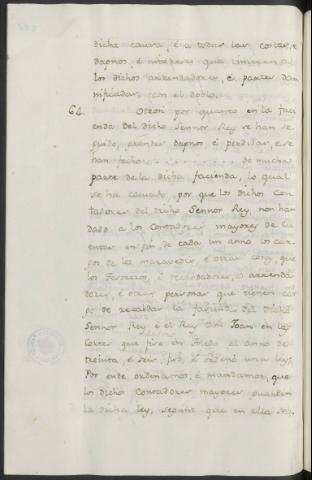 dicha causa, é a todas las costas, é
dapnos, é intereses que vinieren á
los dichos arrendadores, é partes dam
nificadas con el doblo.
64. Otrosi por quanto en la faci
enda del dicho Sennor Rey se han se
guido, grandes dapnos é perdidas, é se
han fechos . . . . . . . . . . de mucha
parte de la dicha facienda, lo qual
se ha causado, por que los dichos con
tadores del dicho Sennor Rey, non han
dado a los Contadores mayores de cu
entas en fin de cada un anno los car
gos de los maravedis, é otras cosas, que
los Tesoreros, é recabdadores, é arrenda
dores, é otras personas que tienen car
go de recabdar la facienda del dicho
Sennor Rey é el Rey Don Joan en las
Cortes que fizo en Toledo el anno de
treinta, é seis, fizo, é ordenó una ley.
Por ende ordenamos, é mandamos, que
los dichos Contadores mayores guarden
la dicha ley, segunt que en ella se